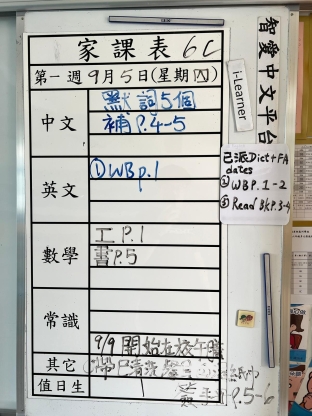 家課表 6C
第一週 9月5日(星期四)
中文
默詞5個
補P.4-5
英文
①WBp.1
數學
工P.1
書P.5
常識
9/9 開始在校午膳
其它
值日生
P.5-6
智愛中文平台
i-Learner
已派Dict+FA
dates
① WBP.1-2
② Read BKP.3-4